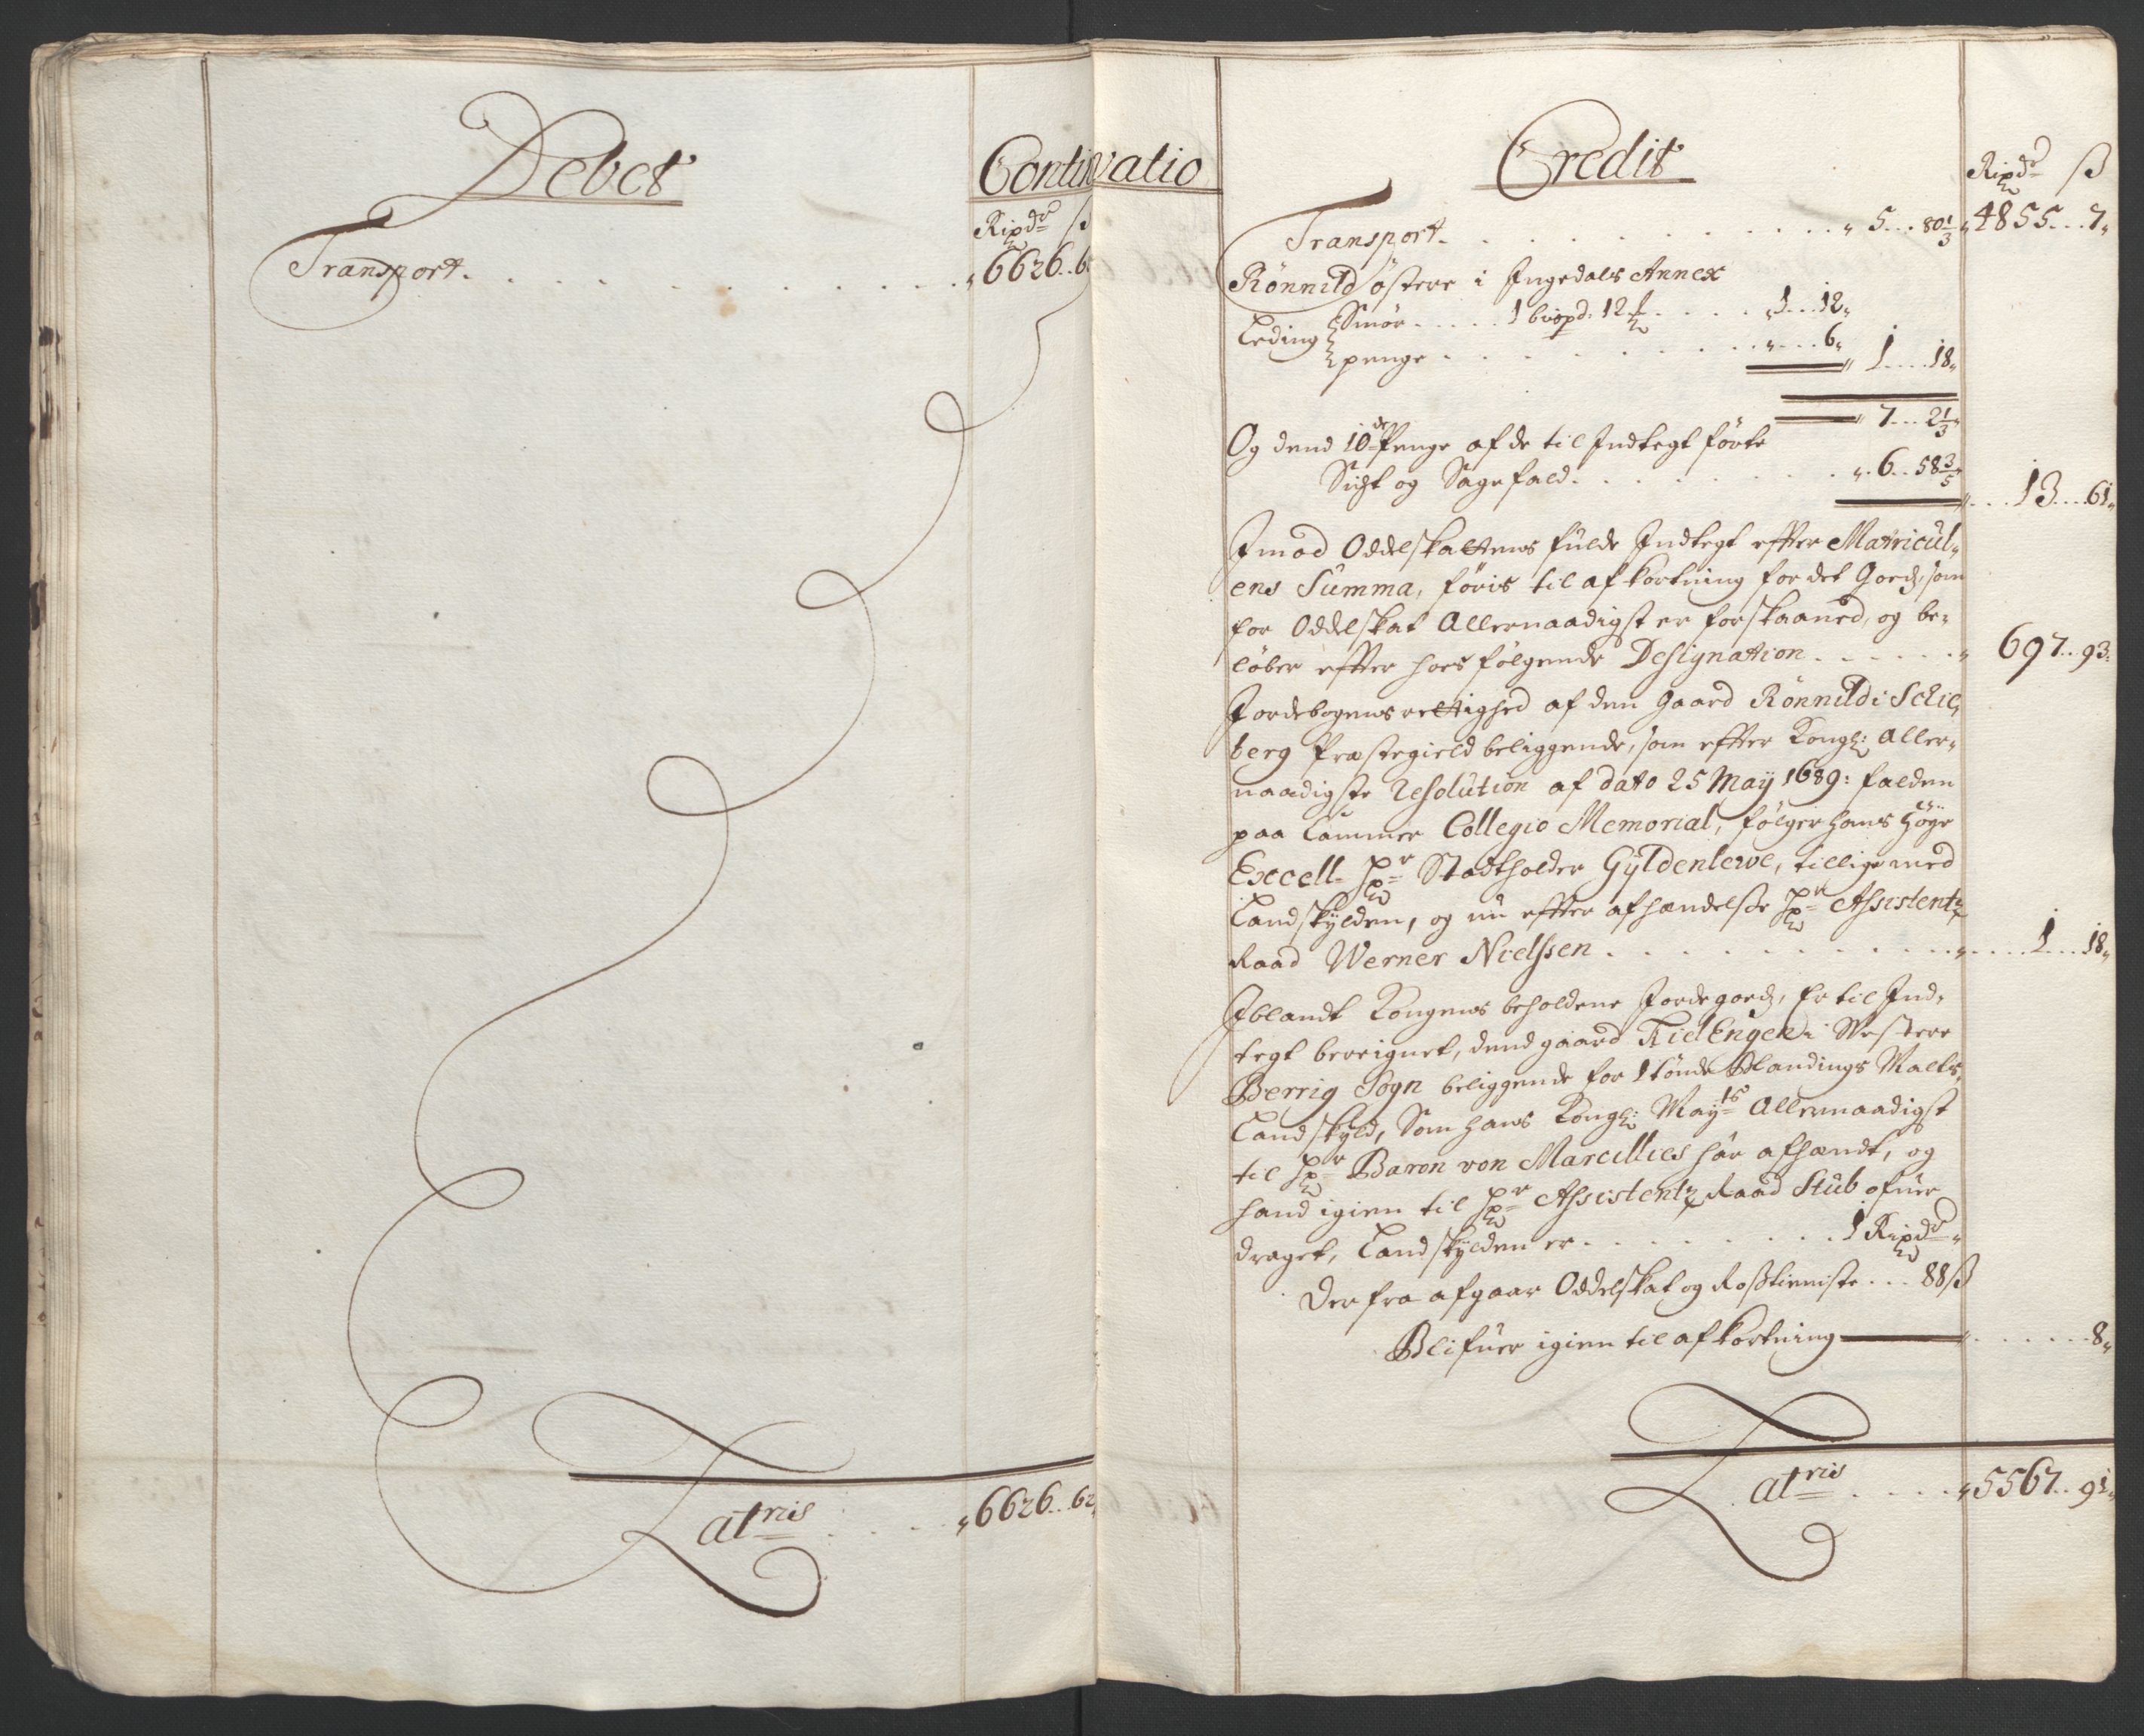 Debet
Contin
Ripdr ß
Transport. . . . . . . . . . . . „6626..6
Latris . . . „6626..62„
vatio
Credit
Ripdr ß
Transport. . . . . . . . . „ 5...80 1/3 „4855...7„
Rönnild östere i Ingedals Annex
Leding Smör . . . . 1 bispd: 12 ℔ . . . . „1...12„
penge . . . . . . . . „...6„ „ 1....18„
„ 7...2 1/3„
Og dend 10de Penge af de til Indtegt förte
Sigt og Sagefald. . . . . . . „.6..58 3/5„ „...13...61„
Imod Oddelskattens fulde Indtegt effter Matricul„
ens Summa, föris til afkortning for det Goeds, som
for Oddelskat Allernaadigst er forskaaned, og be„
löber effter hoes fölgende Designation . . . . . „ 697..93„
Jordebogens rettighed af den Gaard Rönnild i Schie„
berg Præstegield beliggende, som effter Kongl: Aller„
naadigste Resolution af dato 25 Maÿ 1689: falden
paa Cammer Collegio Memorial, fölger hans Höÿe
Excell. Hr Stadtholder Gÿldenlewe, tillige med
Landskÿlden, og nu effter afhændelße Hr Assistentz
Raad Werner Nielssen . . . . . . . . „....1...18„
Iblandt Kongens beholdene Jordegoeds, Er til Ind„
tegt bereignet, dend gaard Kielengen i Westere
Berrig Sogn beliggende for 1 tönde Blandings Malts„
Landskÿld, Som hans Kongl: Maÿts Allernaadigst
til Hr Baron von Marcillies har afhændt, og
hand igien til Hr Assistentz Raad Stub ofuer
draget, Landskÿlden er . . . . . . . . 1 Ripdr„
Der fra afgaar Oddelskat og Roßtienniste . . . 88 ß
Blifuer igien til afkortning „......8„
Latris . . . . „5567..91„